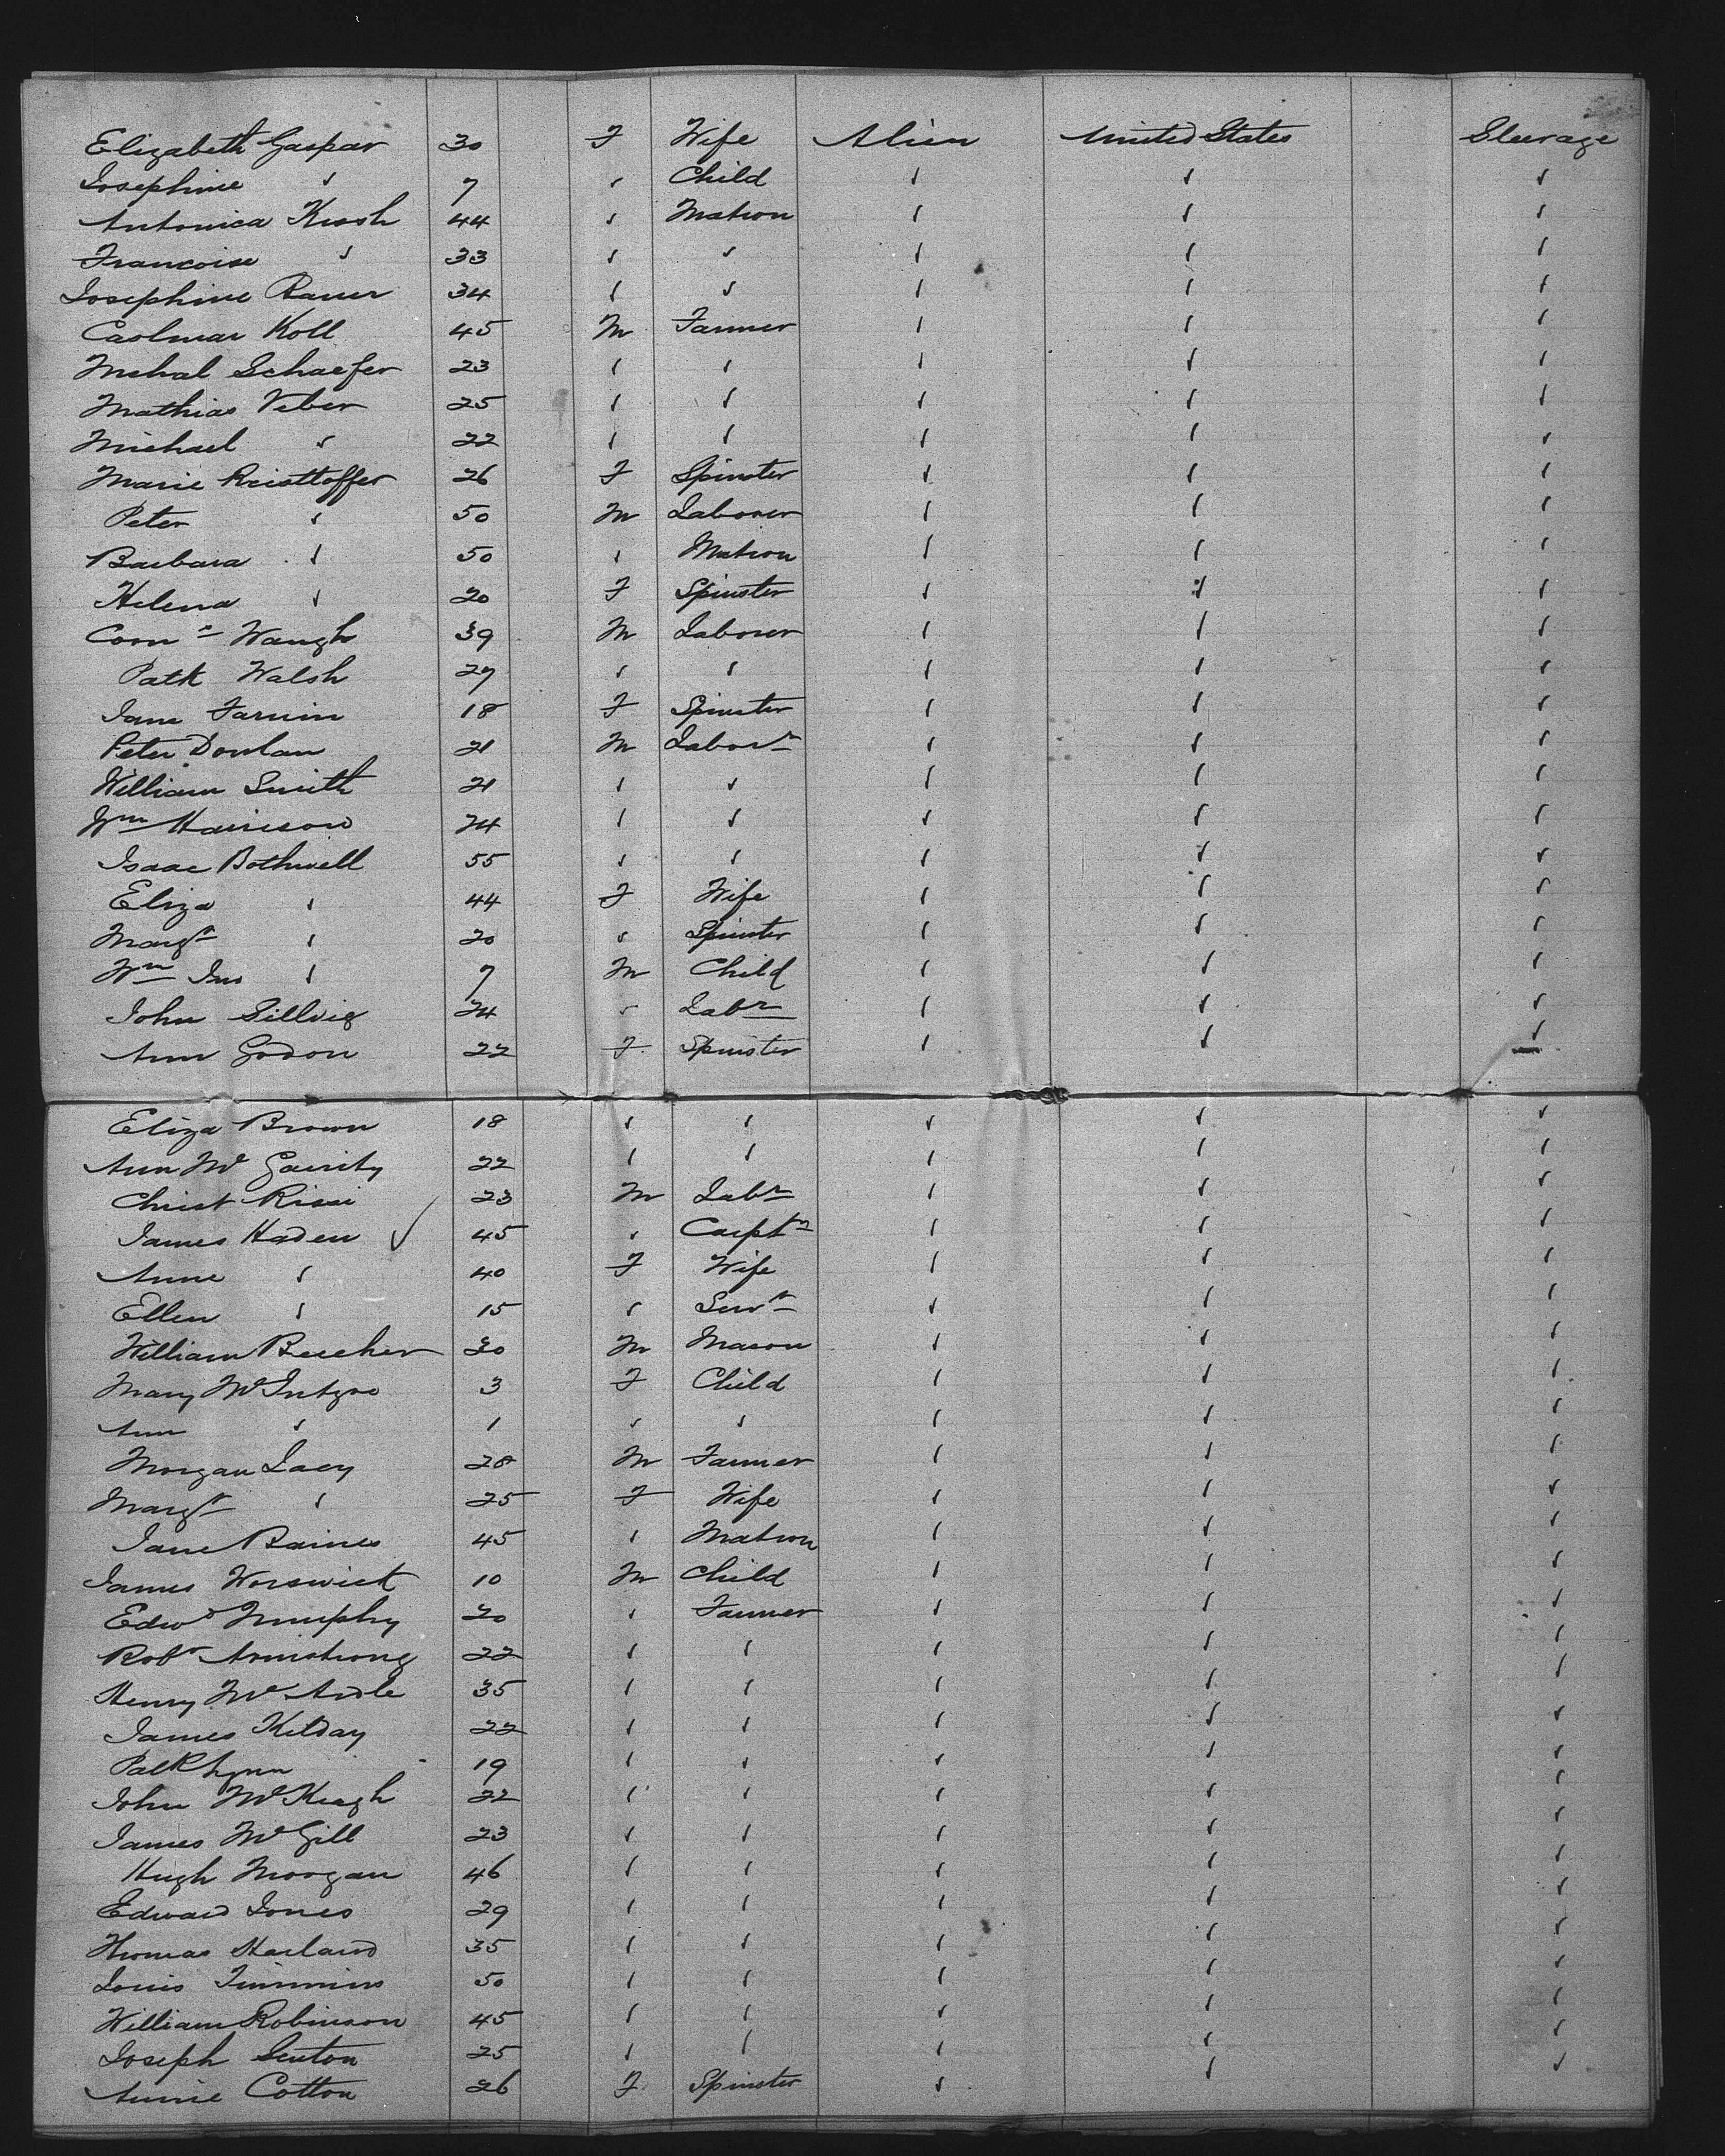 Elizabeth Gaspar 30 F Wife Alien United States Steerage
Josephine " 7 " Child " " "
Antonica Kush 44 " Matron " " "
Francoise " 33 " " " " "
Josephine Bauer 34 " " " " "
Caolmar Koll 45 M Farmer " " "
Mchal Schaefer 23 " " " " "
Mathias Veber 25 " " " " "
Michael " 22 " " " " "
Marie Reisttoffer 26 F Spinster " " "
Peter " 50 M Laborer " " "
Barbara " 50 " Matron " " "
Helena " 20 F Spinster " " "
Corns Waugh 39 M Laborer " " "
Patk Walsh 27 " " " " "
Jane 18 F Spinster " " "
Peter Donlan 21 M Labor " " "
William Smith 21 " " " " "
Wm Harrison 24 " " " " "
Isaac Bothwell 55 " " " " "
Eliza " 44 F Wife " " "
Margt " 20 " Spinster " " "
Wm Jno " 7 M Child " " "
John 24 " Labr " " "
Ann Godon 22 F Spinster " " "
Eliza Brown 18 " " " " "
Ann Mc Garrity 22 " " " " "
Christ 23 M Labr " " "
James Haden ✓ 45 " Carptr " " "
Anne " 40 F Wife " " "
Ellen " 15 " Servt " " "
William Beecher 30 M Mason " " "
Mary McIntyre 3 F Child " " "
Ann " 1 " " " " "
Morgan Lacy 28 M Farmer " " "
Margt " 25 F Wife " " "
Jane Baines 45 " Matron " " "
James Worswick 10 M Child " " "
Edwd Murphy 20 " Farmer " " "
Robt Armstrong 22 " " " " "
Henry Mc Ardle 35 " " " " "
James Kilday 22 " " " " "
Patk Lynn 19 " " " " "
John McKeagh 22 " " " " "
James McGill 23 " " " " "
Hugh Morgan 46 " " " " "
Edward Jones 29 " " " " "
Thomas Harland 35 " " " " "
Louis Timmins 50 " " " " "
William Robinson 45 " " " " "
Joseph Senton 25 " " " " "
Annie Cotton 26 F Spinster " " "